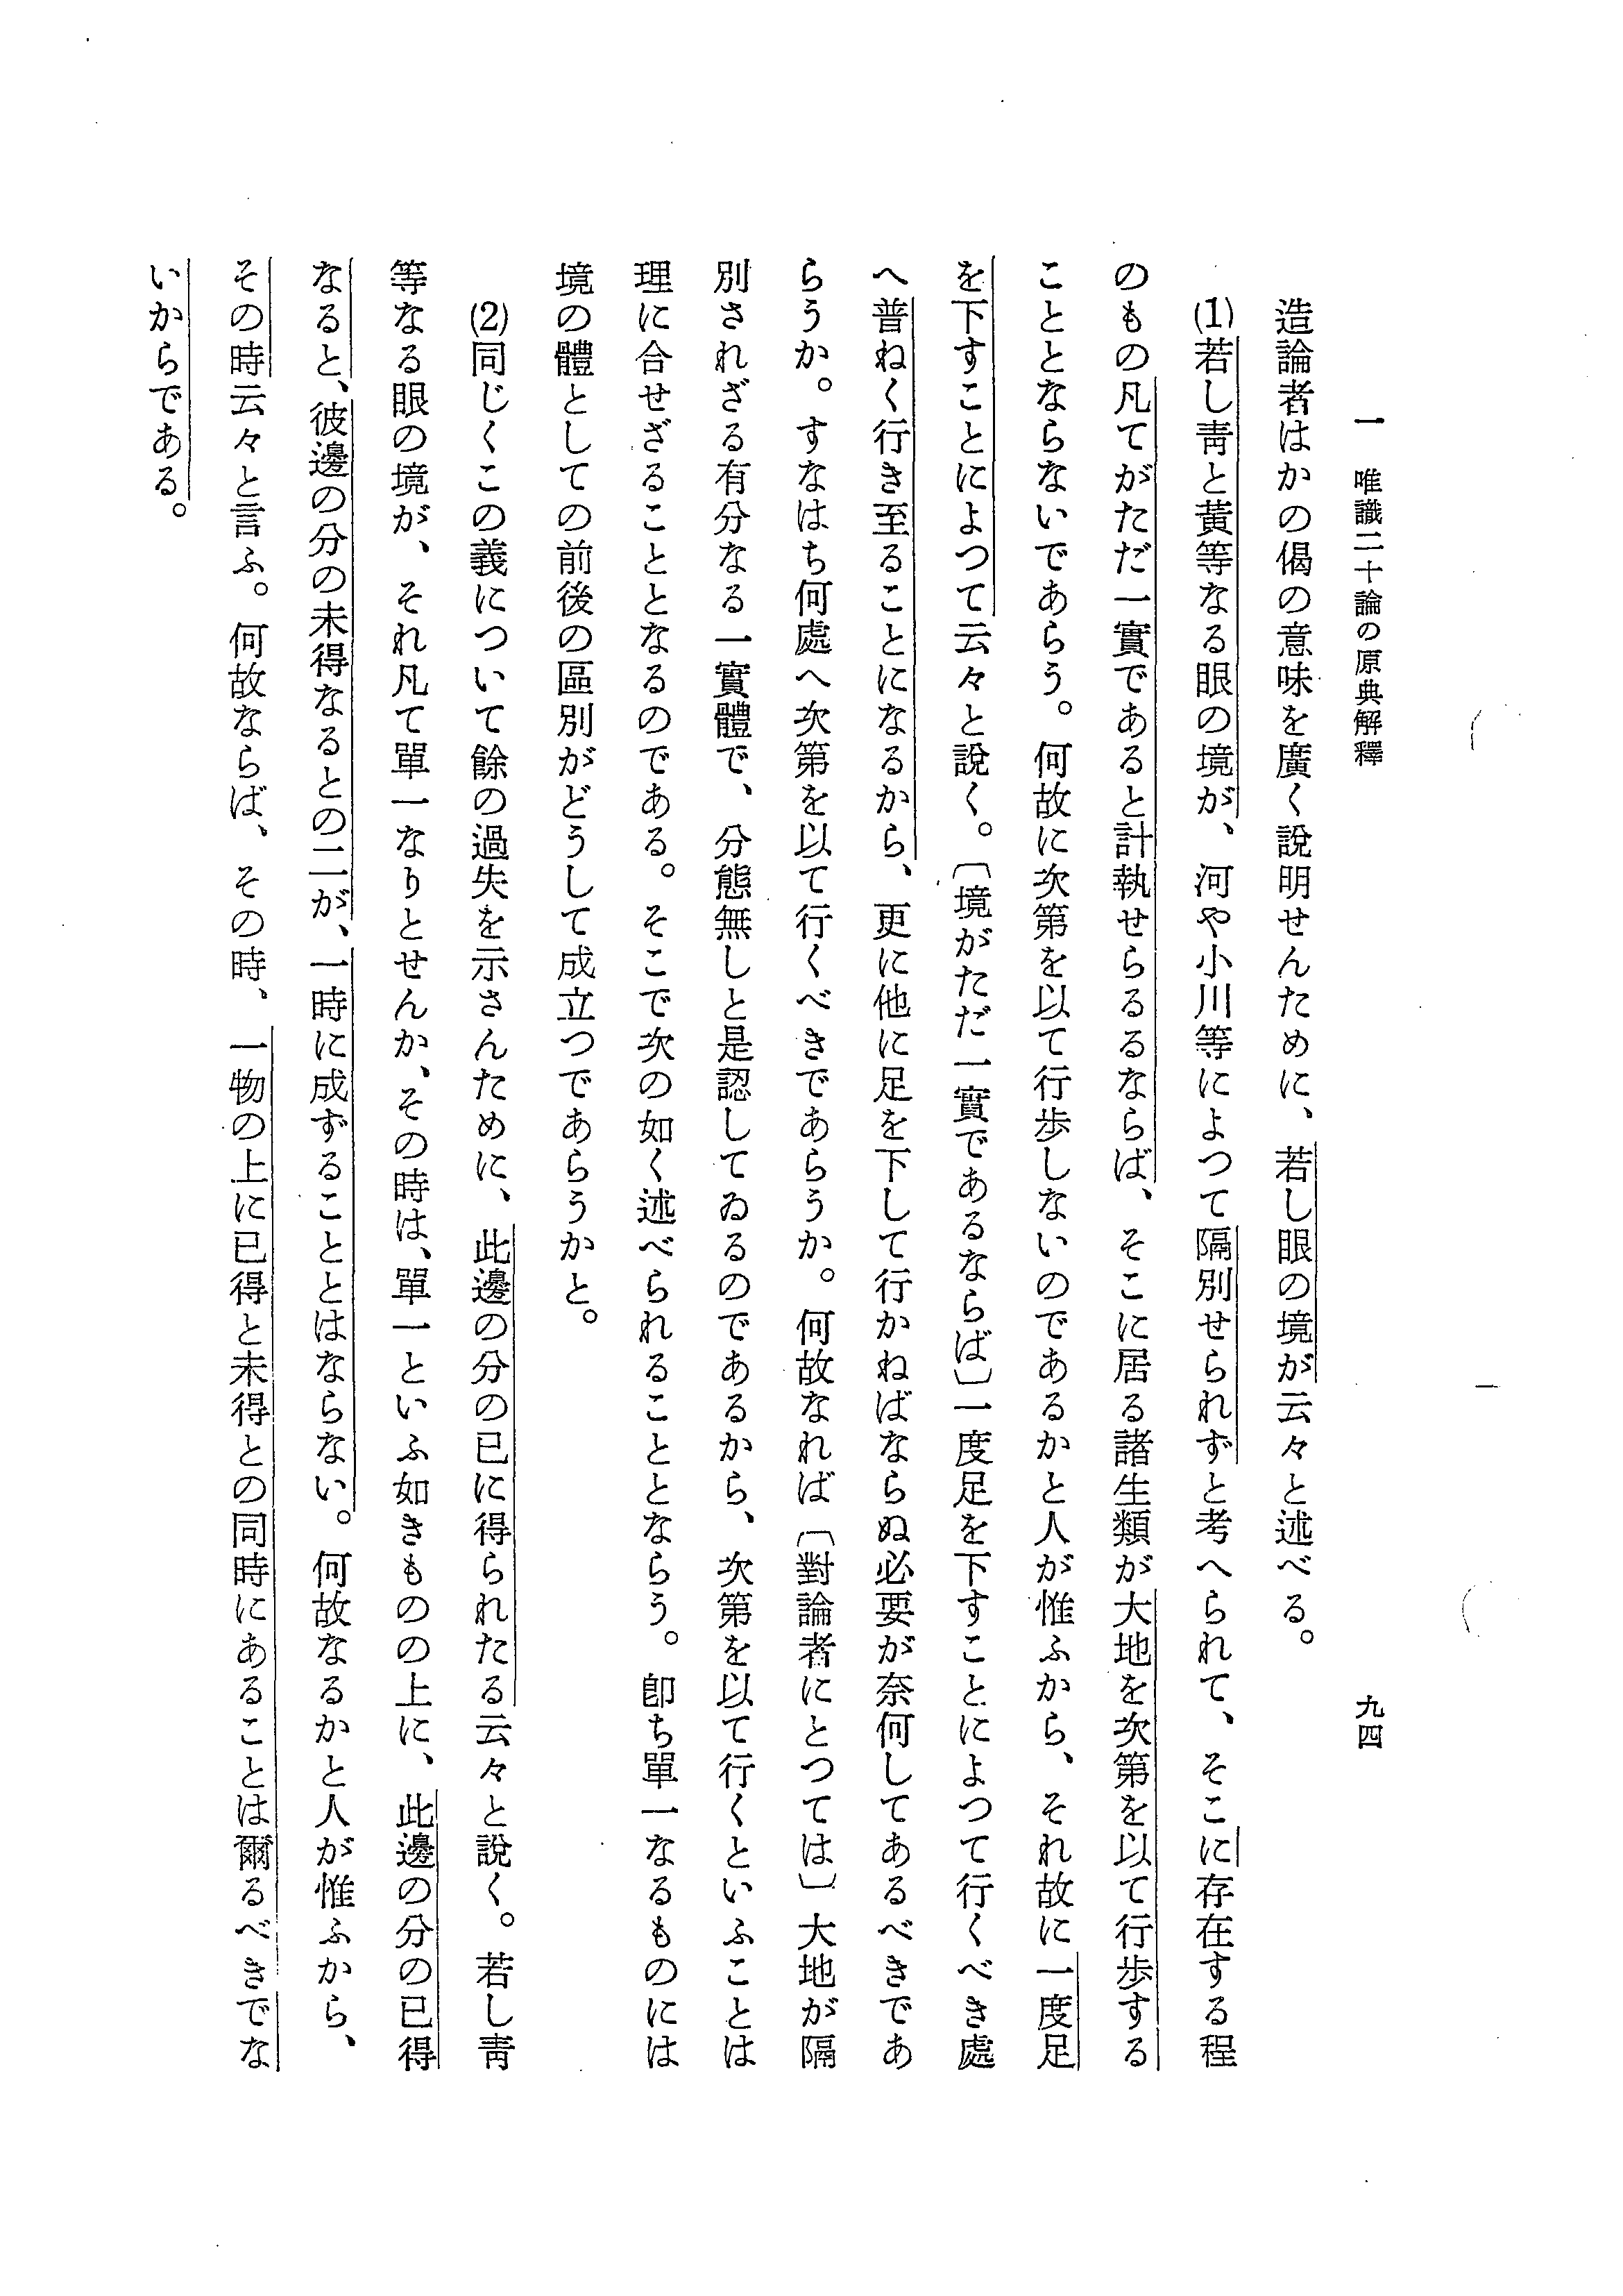 一　唯識二十論の原典解釋　九四
造論者はかの偈の意味を廣く說明せんために、若し眼の境が云々と述べる。
(1)若し靑と黃等なる眼の境が、河や小川等によつて隔別せられずと考へられて、そこに存在する程
のもの凡てがただ一實であると計執せらるるならば、そこに居る諸生類が大地を次第を以て行步する
こととならないであらう。何故に次第を以て行步しないのであるかと人が惟ふから、それ故に一度足
を下すことによつて云々と說く。〔境がただ一實であるならば〕一度足を下すことによつて行くべき處
へ普ねく行き至ることになるから、更に他に足を下して行かねばならぬ必要が奈何してあるべきであ
らうか。すなはち何處へ次第を以て行くべきであらうか。何故なれば〔對論者にとつては〕大地が隔
別されざる有分なる一實體で、分態無しと是認してゐるのであるから、次第を以て行くといふことは
理に合せざることとなるのである。そこで次の如く述べられることとならう。卽ち單一なるものには
境の體としての前後の區別がどうして成立つであらうかと。
(2)同じくこの義について餘の過失を示さんために、此邊の分の已に得られたる云々と說く。若し靑
等なる眼の境が、それ凡て單一なりとせんか、その時は、單一といふ如きものの上に、此邊の分の已得
なると、彼邊の分の未得なるとの二が、一時に成ずることとはならない。何故なるかと人が惟ふから、
その時云々と言ふ。何故ならば、その時、一物の上に已得と未得との同時にあることは爾るべきでな
いからである。